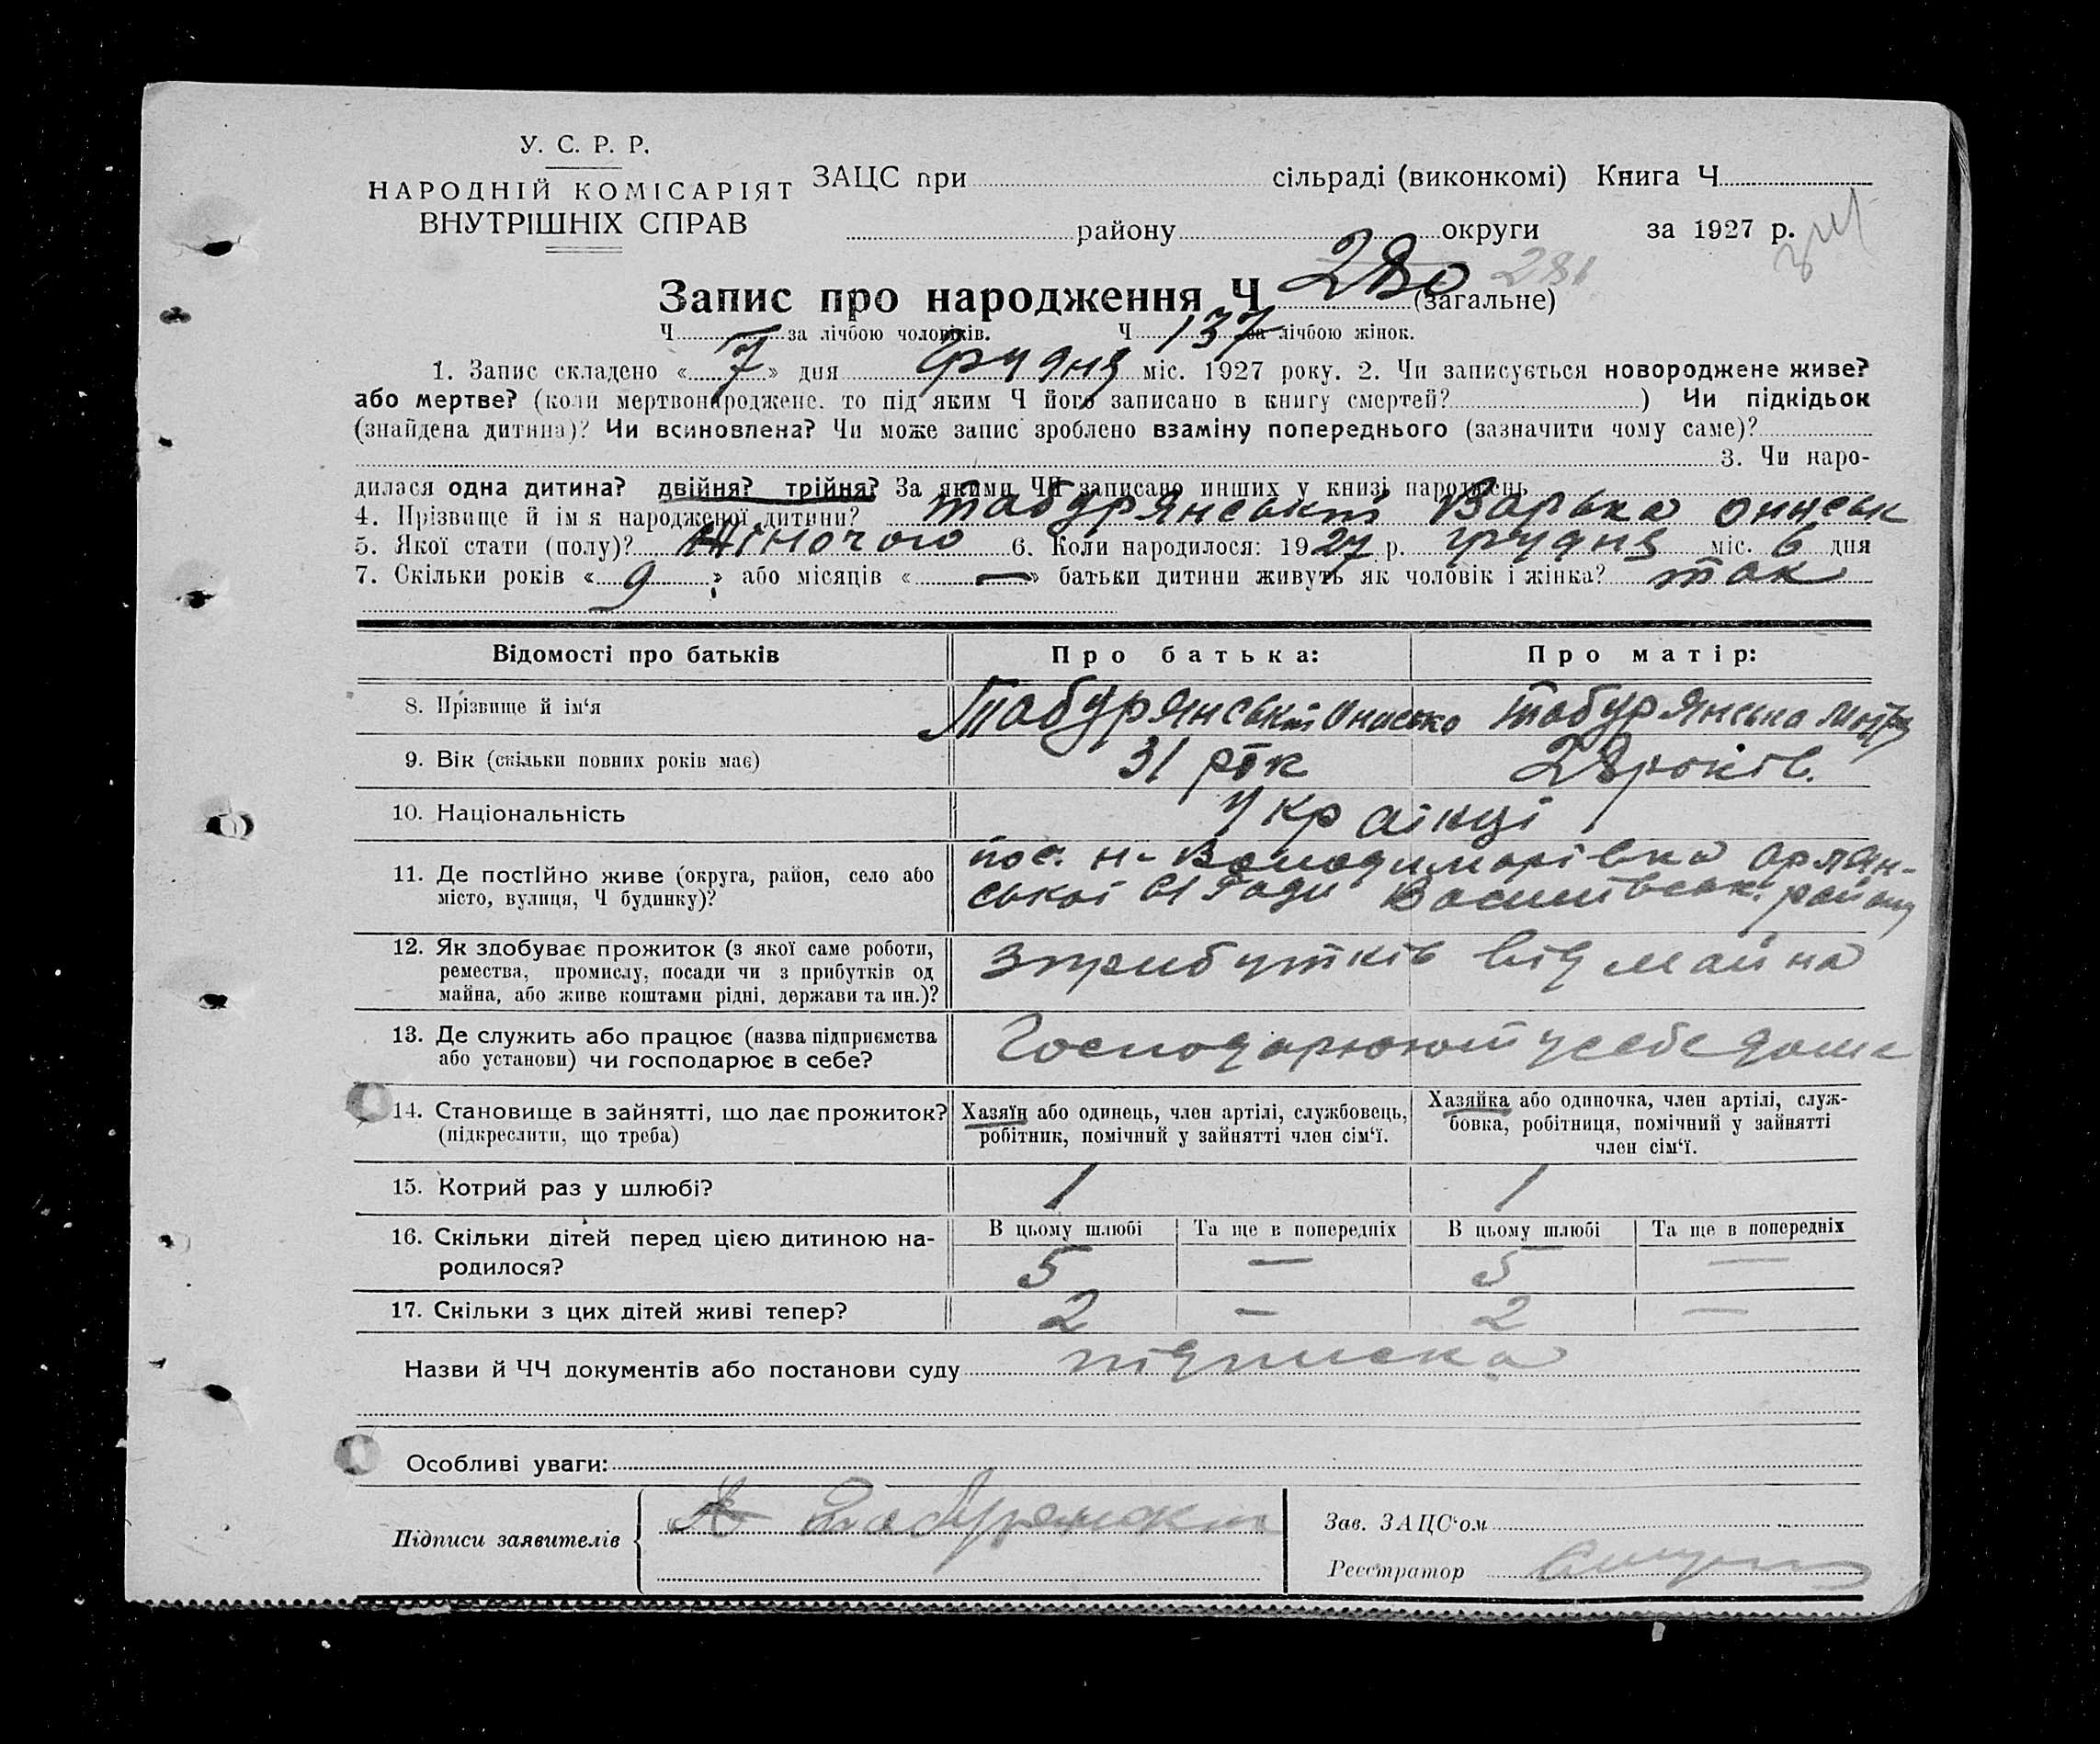 У. С. Р. Р.
НАРОДНІЙ КОМІСАРІЯТ
ВНУТРІШНІХ СПРАВ
ЗАЦС при сільраді (виконкомі) Книга Ч
району округи за 1927 р.
Запис про народження Ч 280 281 (загальне)
Ч за лічбою чоловіків. Ч 137 за лічбою жінок.
1. Запис складено « 7 » дня Грудня міс. 1927 року. 2. Чи записується новороджене живе?
або мертве? (коли мертвонароджене. то під яким Ч його записано в книгу смертей? ) Чи підкідьок
(знайдена дитина)? Чи всиновлена? Чи може запис зроблено взаміну попереднього (зазначити чому саме)?
3. Чи наро-
дилася одна дитина? двійня? трійня? За якими ЧЧ записано инших у книзі народжень
4. Прізвище й імя народженої дитини? Табурянськ Варька
5. Якої стати (полу)? Жіночого 6. Коли народилося: 1927 р. грудня міс. 6 дня
7. Скільки років « 9 » або місяців « — » батьки дитини живуть як чоловік і жінка? так
Відомості про батьків Про батька: Про матір:
8. Прізвище й ім‘я Табурянськ Онисько Табурянська
9. Вік (скільки повних років має) 31 рік 28 років.
10. Національність Українці
11. Де постійно живе (округа, район, село або
місто, вулиця, Ч будинку)?
пос. Н-Володимирівка Орлян-
ської С/Ради Василівськ. району
12. Як здобуває прожиток (з якої саме роботи,
ремества, промислу, посади чи з прибутків од
майна, або живе коштами рідні, держави та ин.)?
з прибутків від майна
13. Де служить або працює (назва підприємства
або установи) чи господарює в себе?
Господарюют у себе дома
14. Становище в зайнятті, що дає прожиток?
(підкреслити, що треба)
Хазяїн або одинець, член артілі, службовець,
робітник, помічний у зайнятті член сім‘ї.
Хазяйка або одиночка, член артілі, служ-
бовка, робітниця, помічний у зайнятті
член сім‘ї.
15. Котрий раз у шлюбі? 1 1
16. Скільки дітей перед цією дитиною на-
родилося?
В цьому шлюбі Та ще в попередніх В цьому шлюбі Та ще в попередніх
5 — 5 —
17. Скільки з цих дітей живі тепер? 2 — 2 —
Назви й ЧЧ документів або постанови суду підписка
Особливі уваги:
Підписи заявителів
Зав. ЗАЦС‘ом
Реєстратор